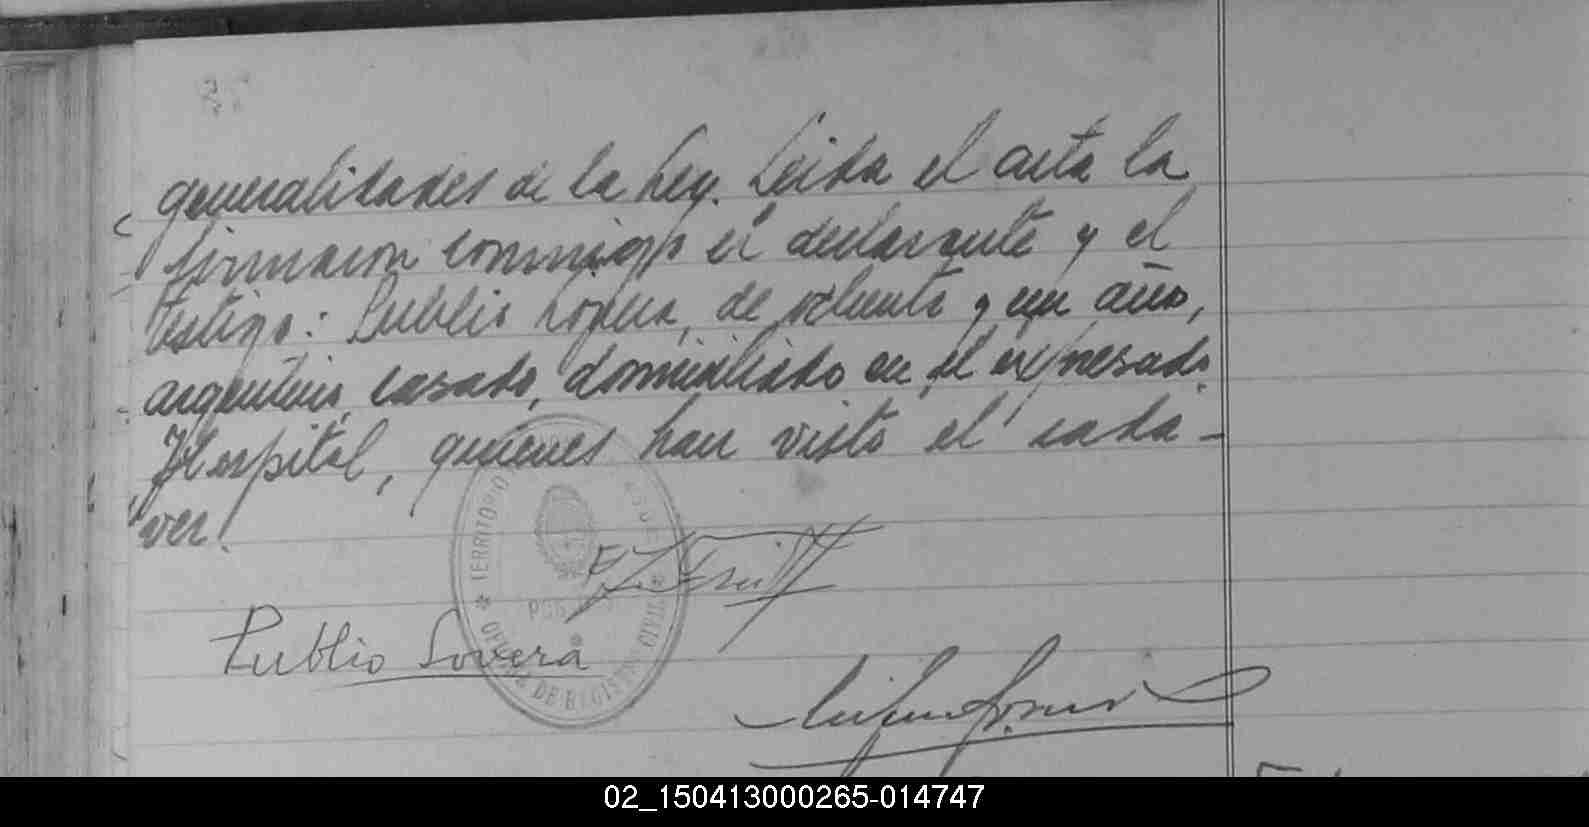 generalidades de la Ley. Leida el acta la
firmaron conmigo el declarante y el
testigo: Publio Lovera, de ochenta y un año,
argentino, casado, domiciliado en el expresado
Hospital, quienes han visto el cada-
ver.
TERRITORIO
OFICINA DE REGISTRO CIVIL
Publio Lovera
02_150413000265-014747